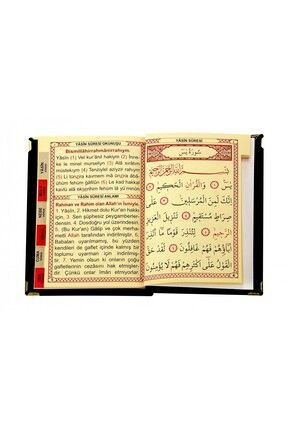 YÂSİN SÛRESİ OKUNUŞU
Bismillâhirrahmânirrahıym.
Yâsîn (1) Vel kur'ânil hakıym (2) İnne-
ke le minel murselıyn (3) Alâ sırâtım
müstekıym (4) Tenziylel aziyzir rahıym
(5) Li tünzira kavmem mâ ünzira âbâ-
ühüm fehüm ğâfilûn (6) Lekad hakkal
kavlü alâ ekserihim fehüm lâ yü'minûn
YÂSİN SÛRESİ ANLAMI
Rahman ve Rahim olan Allah'ın ismiyle
1. Yâsîn, 2. Hikmet dolu Kur'an hakkı
için, 3. Sen şüphesiz peygamberler-
densin, 4. Doğru bir yol üzerindesin.
5. (Bu Kur'an) Galip ve çok merha-
metli Allah tarafından indirilmiştir. 6.
Babaları uyarılmamış, bu yüzden
kendileri de gaflet içinde kalmış bir
toplumu uyarman için indirilmiştir.
7. Yemin olsun ki onların çoğu
gafletlerinin cezasını hak etmişler-
dir. Çünkü onlar İman etmiyorlar
YÂSİN SÛRESİ
سُورَةُ يٰسٓ
بِسْمِ اللّٰهِ الرَّحْمٰنِ الرَّحِيمِ
يٰسٓ ۝ وَالْقُرْاٰنِ الْحَكِيمِ ۝
اِنَّكَ لَمِنَ الْمُرْسَلِينَ ۝ عَلٰى
صِرَاطٍ مُسْتَقِيمٍ ۝ تَنْزِيلَ الْعَزِيزِ
الرَّحِيمِ ۝ لِتُنْذِرَ قَوْمًا مَٓا اُنْذِرَ
اٰبَٓاؤُهُمْ فَهُمْ غَافِلُونَ ۝ لَقَدْ حَقَّ
الْقَوْلُ عَلٰٓى اَكْثَرِهِمْ فَهُمْ لَا يُؤْمِنُونَ